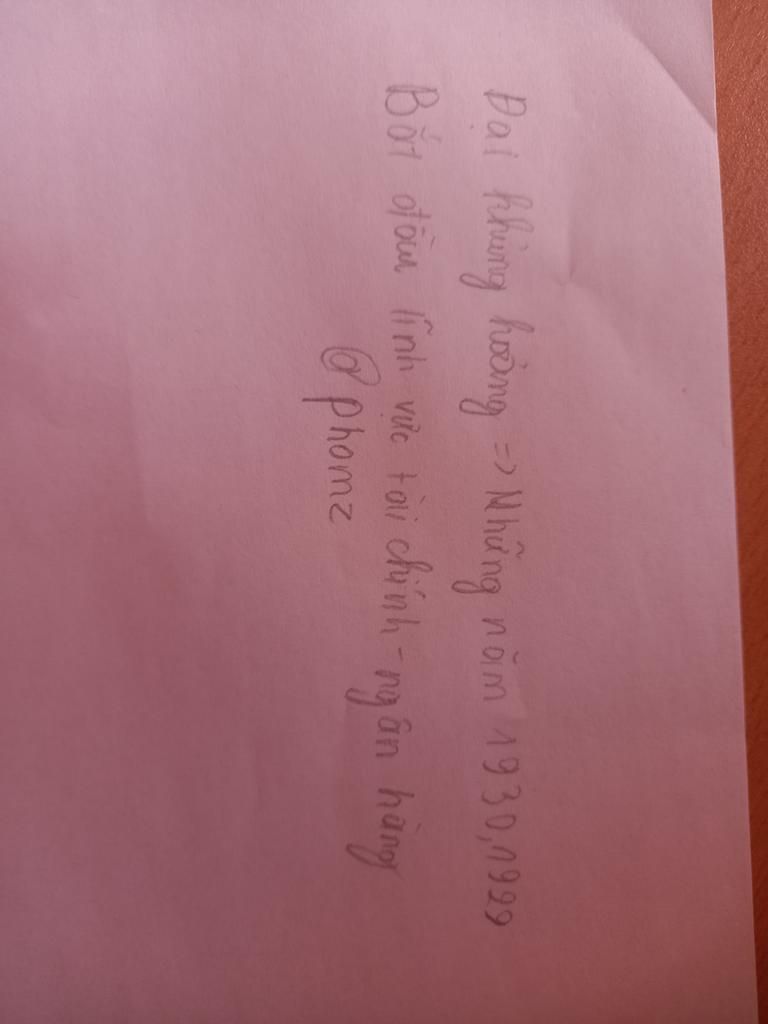 Đại khủng hoảng => Những năm 1930,1929
Bắt đầu lĩnh vực tài chính - ngân hàng
@phomz